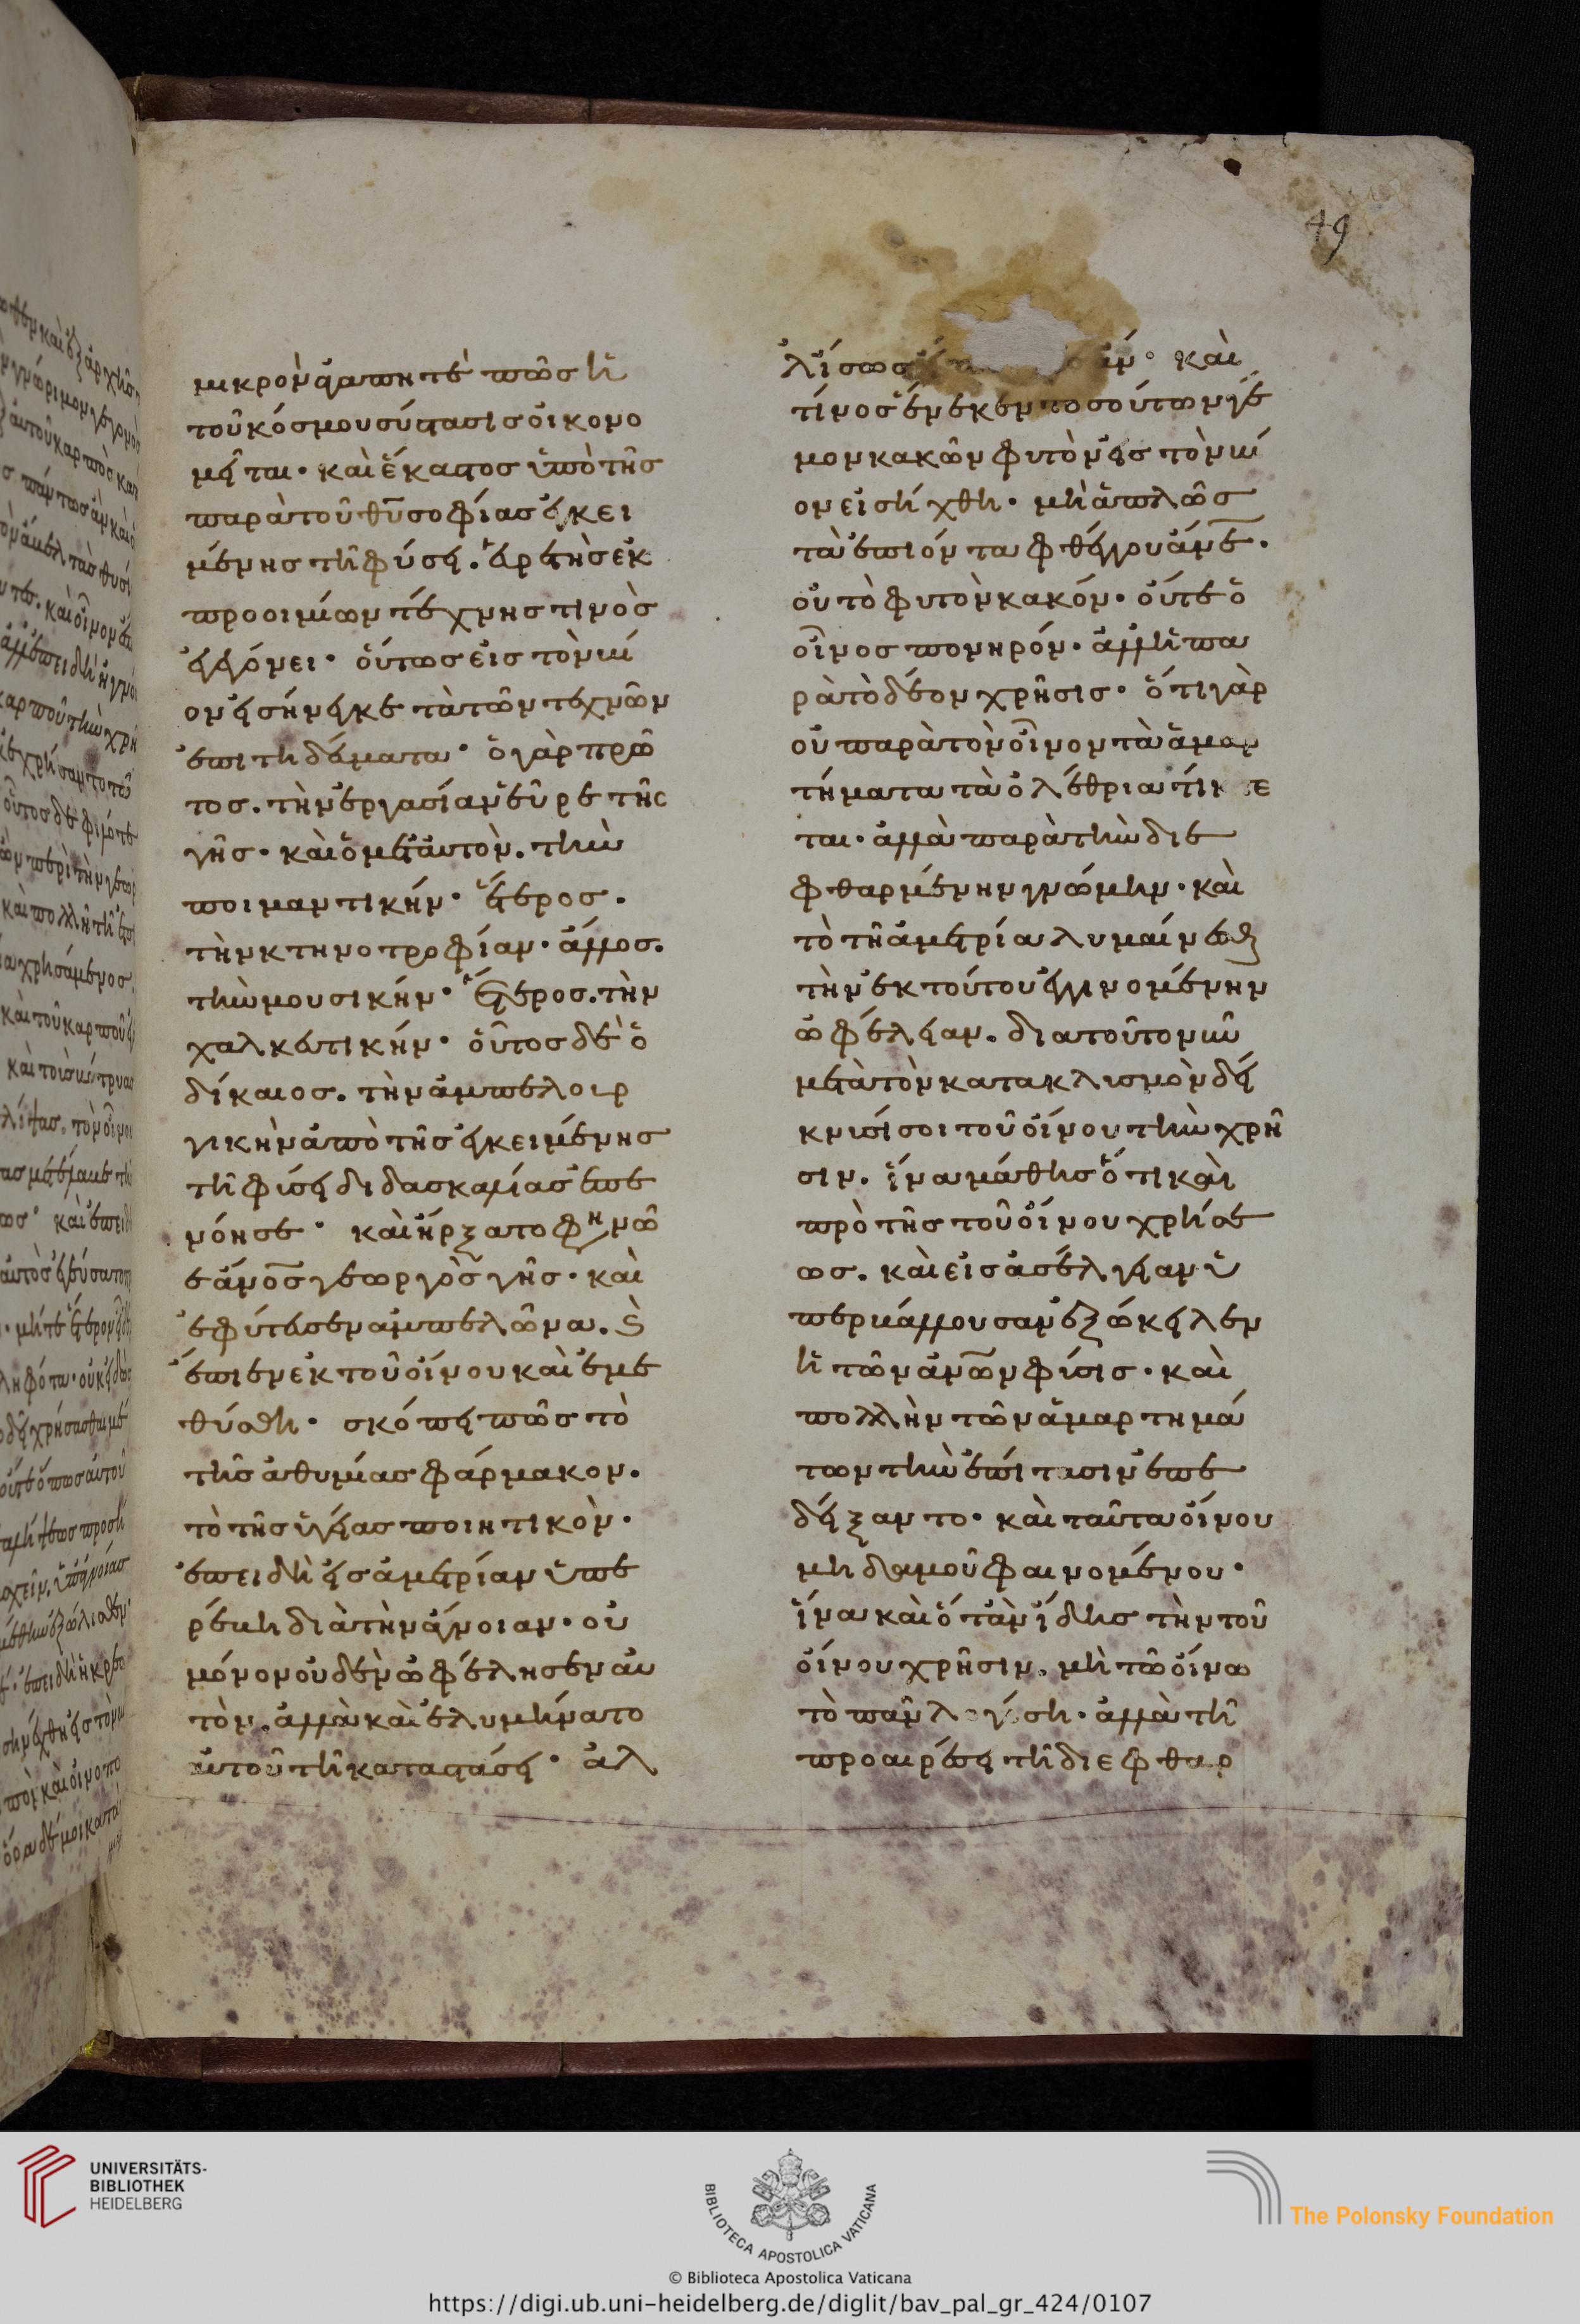 49
μικρὸν ἀγαπητὲ πῶς ἡ
τοῦ κόσμου σύστασις οἰκονο
μεῖται· καὶ ἕκαστος ὑπὸ τῆς
παρὰ τοῦ θυ σοφίας ἐγκει
μένης τῆ φύσει· εὑρετὴς ἐκ
προοιμίων τέχνης τινὸς
ἐγεγόνει· οὕτως εἰς τὸν βί
ον εἰσήνεγκε τὰ τῶν τεχνῶν
ἐπιτηδεύματα· ὁ γὰρ πρῶ
τος. τὴν ἐργασίαν εὗρε τῆς
γῆς· καὶ ὁ μετ αὐτὸν. τὴν
ποιμαντικήν· ἕτερος.
τὴν κτηνοτροφίαν· ἄλλος.
τὴν μουσικήν· ἕτερος. τὴν
χαλκευτικήν· οὗτος δὲ ὁ
δίκαιος. τὴν ἀμπελουρ
γικὴν ἀπὸ τῆς ἐγκειμένης
τῆ φύσει διδασκαλίας ἐπε
νόησε· καὶ ἤρξατο φη νῶ
ε ἀνος γεωργὸς γῆς· καὶ
ἐφύτευσεν ἀμπελῶνα. καὶ
ἔπιεν ἐκ τοῦ οἴνου καὶ ἐμε
θύσθη· σκόπει πῶς τὸ
τῆς ἀθυμίας φάρμακον.
τὸ τῆς ὑγείας ποιητικὸν·
ἐπειδὴ εἰς ἀμετρίαν ὑπε
ρέβη διὰ τὴν ἄγνοιαν· οὐ
μόνον οὐδὲν ὠφέλησεν αὐ
τὸν. ἀλλὰ καὶ ἐλυμήνατο
αὐτοῦ τῆ καταστάσει· ἀλ
λ ἴσως ἄν· καὶ
τίνος ἕνεκεν τοσούτων γέ
μον κακῶν φυτὸν εἰς τὸν βί
ον εἰσήχθη· μὴ ἁπλῶς
τὰ ἐπιόντα φθέγγου ἄνε.
οὐ τὸ φυτὸν κακόν· οὔτε ὁ
οἶνος πονηρόν· ἀλλ ἡ πα
ρὰ τὸ δέον χρῆσις· ὅτι γὰρ
οὐ παρὰ τὸν οἶνον τὰ ἁμαρ
τήματα τὰ ὀλέθρια τίκτε
ται· ἀλλὰ παρὰ τὴν διε
φθαρμένην γνώμην· καὶ
τὸ τῆ ἀμετρία λυμαίνεσθαι
τὴν ἐκ τούτου ἐγγινομένην
ὠφέλειαν. διατοῦτο νῦν
μετὰ τὸν κατακλυσμὸν δεί
κνυσί σοι τοῦ οἴνου τὴν χρῆ
σιν. ἵνα μάθης ὅτι καὶ
πρὸ τῆς τοῦ οἴνου χρήσε
ως. καὶ εἰς ἀσέλγειαν ὑ
περβάλλουσαν ἐξώκειλεν
ἡ τῶν ἀνων φύσις· καὶ
πολλὴν τῶν ἁμαρτημά
των τὴν ἐπίτασιν ἐπε
δείξαντο· καὶ ταῦτα οἴνου
μηδαμοῦ φαινομένου·
ἵνα καὶ ὅταν ἴδης τὴν τοῦ
οἴνου χρῆσιν. μὴ τῶ οἴνω
τὸ πᾶν λογίση· ἀλλὰ τῆ
προαιρέσει τῆ διεφθαρ
UNIVERSITÄTS-
BIBLIOTHEK
HEIDELBERG
BIBLIOTECA APOSTOLICA VATICANA
The Polonsky Foundation
© Biblioteca Apostolica Vaticana
https://digi.ub.uni-heidelberg.de/diglit/bav_pal_gr_424/0107